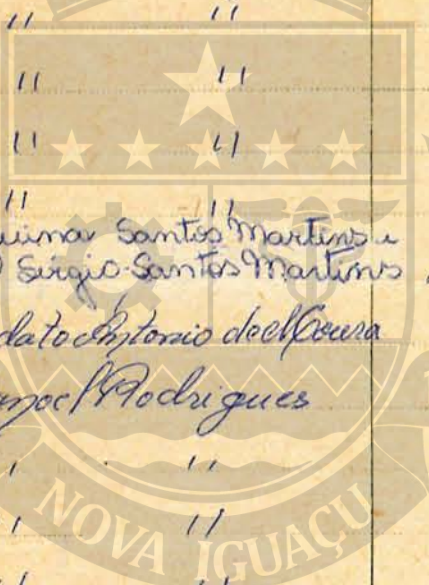 " "
" "
" "
" "
uima Santos Martins e
Sérgio Santos Martins
dato Antonio de Moura
noel Rodrigues
" "
" "
" "
NOVA IGUAÇU